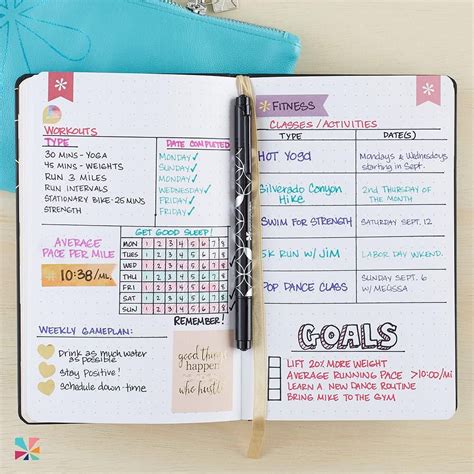 WORKOUTS
TYPE
DATE COMPLETED
30 MINS - YOGA
MONDAY ✓
45 MINS - WEIGHTS
MONDAY ✓
RUN 3 MILES
TUESDAY ✓
RUN INTERVALS
WEDNESDAY ✓
STATIONARY BIKE - 25 MINS
FRIDAY ✓
STRENGTH
FRIDAY ✓
GET GOOD SLEEP!
AVERAGE
PACE PER MILE
10:38/MI.
MON 1 2 3 4 5 6 7 8
TUES 1 2 3 4 5 6 7 8
WED 1 2 3 4 5 6 7 8
THU 1 2 3 4 5 6 7 8
FRI 1 2 3 4 5 6 7 8
SAT 1 2 3 4 5 6 7 8
SUN 1 2 3 4 5 6 7 8
REMEMBER!
WEEKLY GAMEPLAN:
Drink as much water
as possible
Stay Positive!
schedule down-time
good things
happen
who hustle
FITNESS
CLASSES / ACTIVITIES
TYPE
DATE(S)
HOT YOGA
Mondays & Wednesdays
starting in Sept.
Silverado Canyon
Hike
2nd THURSDAY OF
THE MONTH
SWIM FOR STRENGTH
SATURDAY SEPT. 12
5K RUN w/ JIM
LABOR DAY WKEND.
POP DANCE CLASS
SUNDAY SEPT. 6
w/ MELISSA
GOALS
LIFT 20% MORE WEIGHT
AVERAGE RUNNING PACE >10:00/MI
LEARN A NEW DANCE ROUTINE
BRING MIKE TO THE GYM